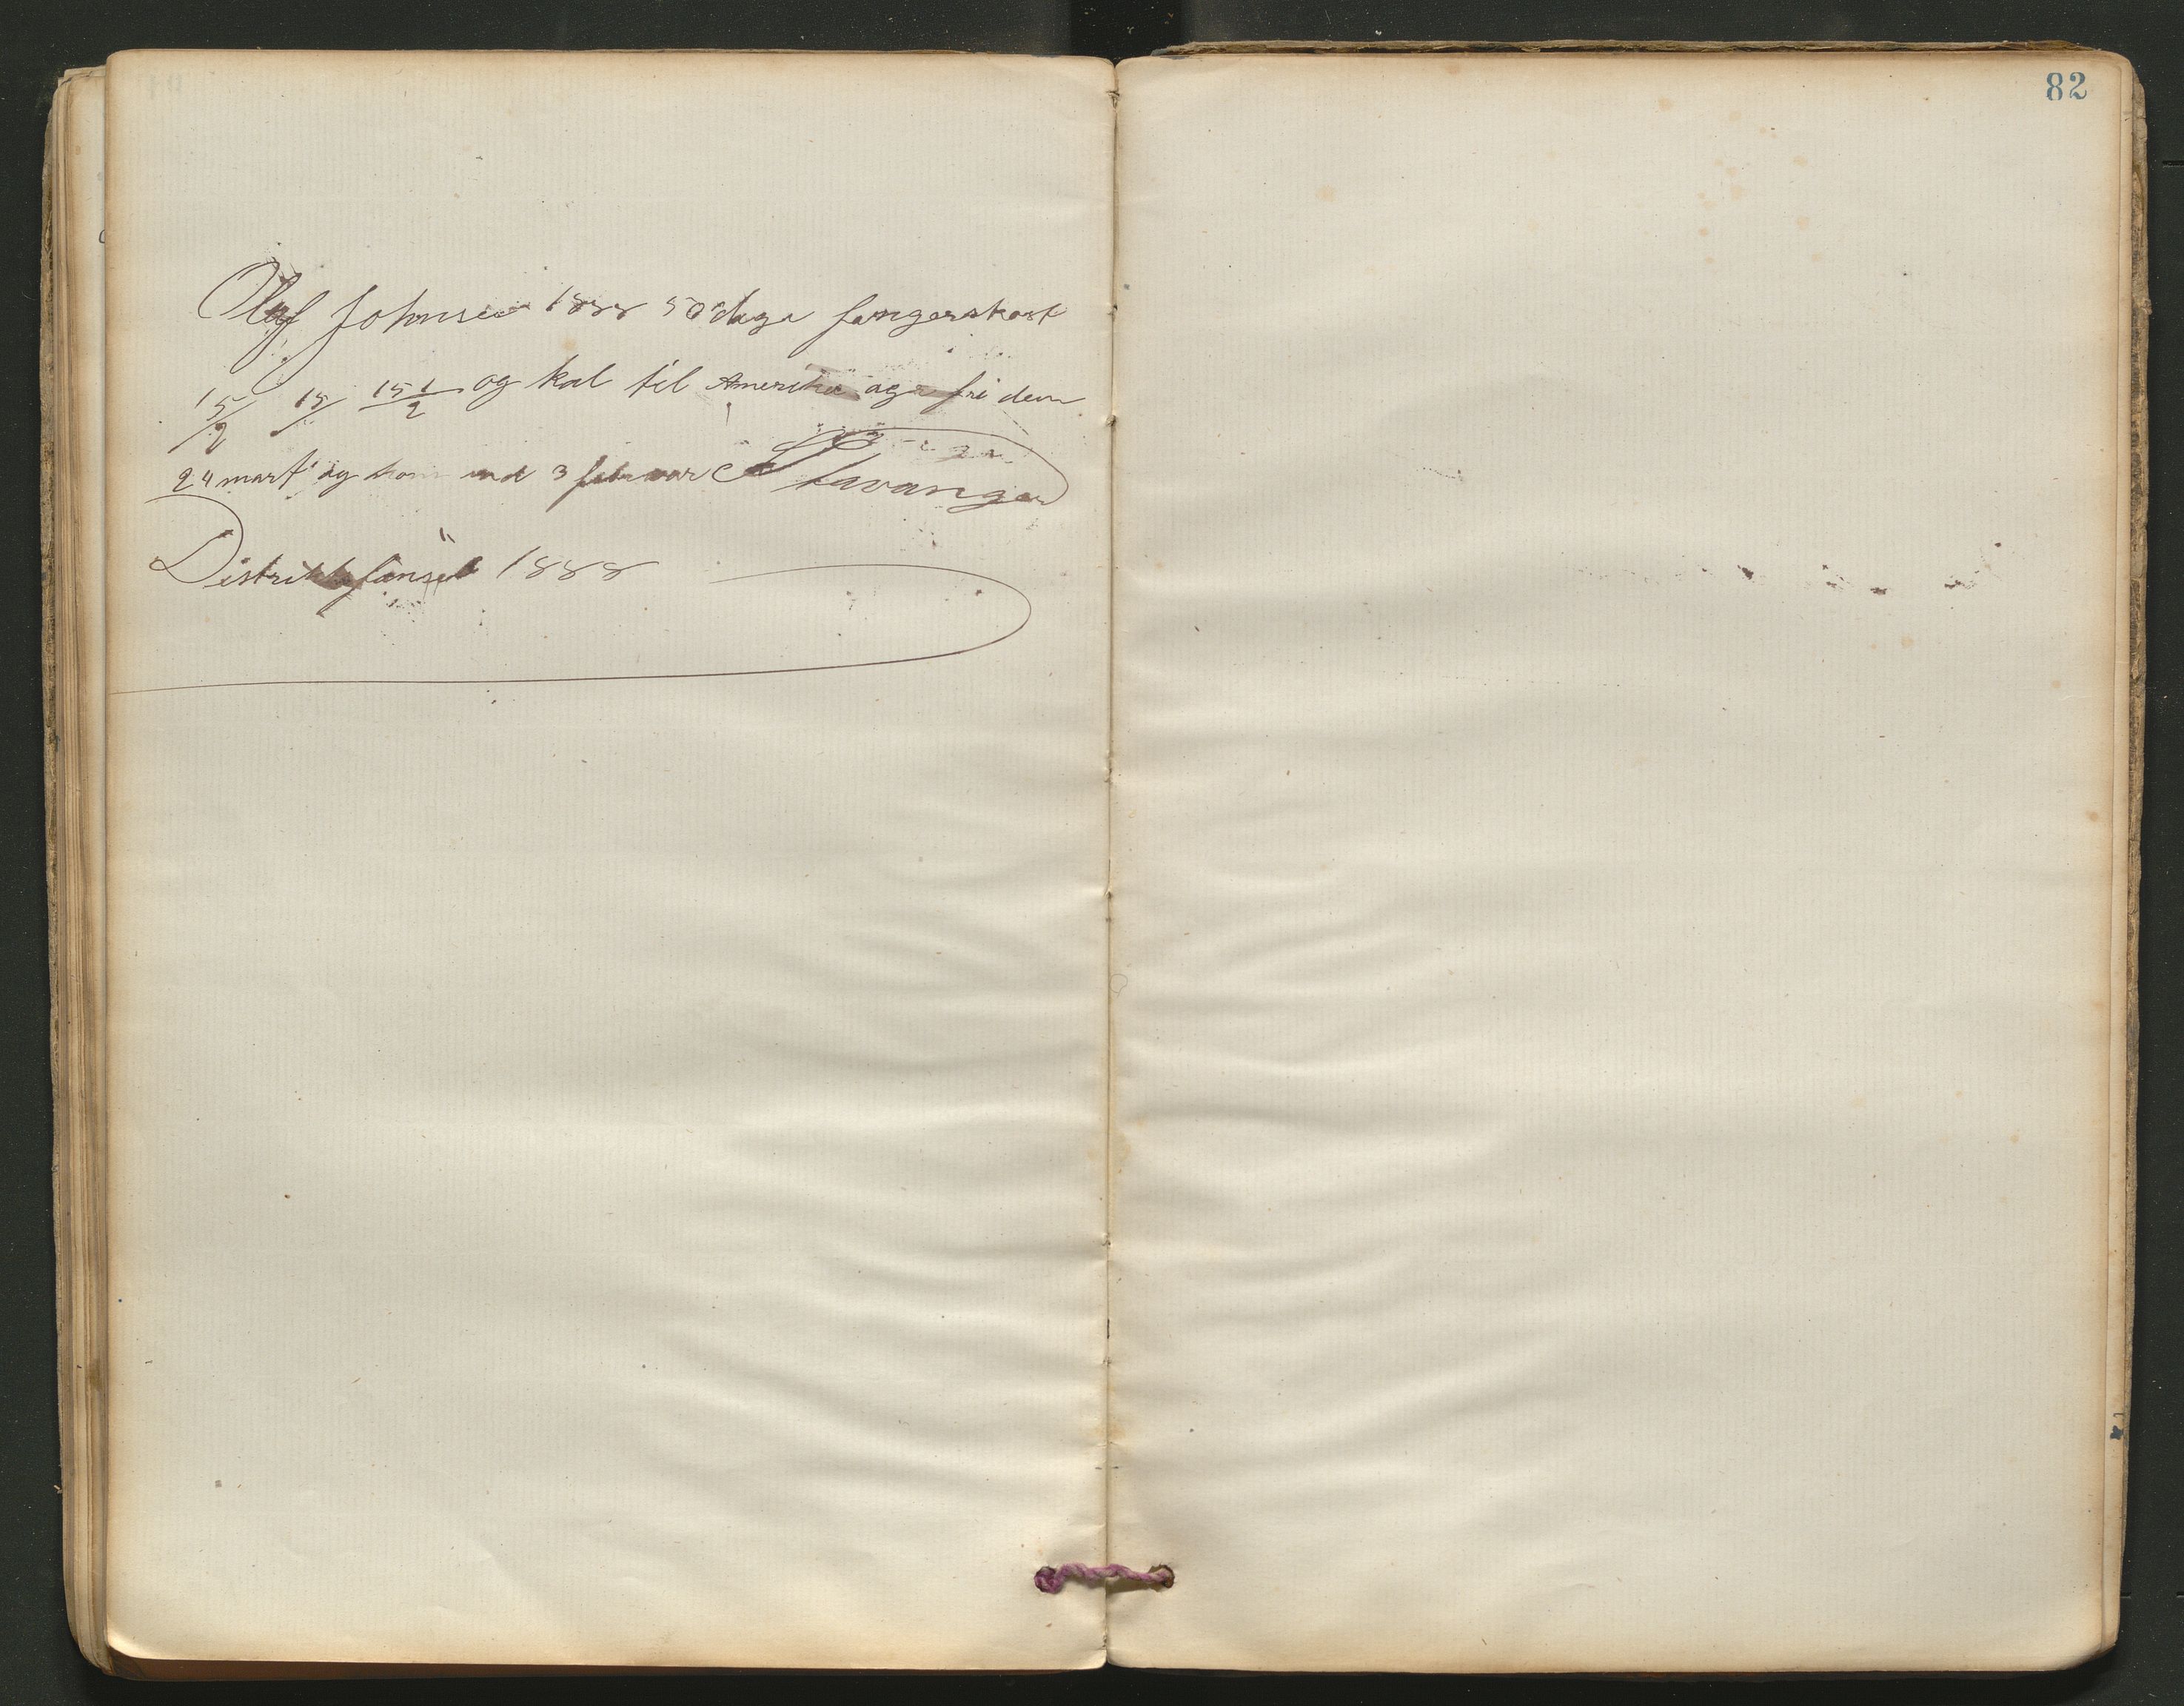 82
Olaf Johnsen 1888 50 daga fangerskost
15/2 15/ 15 1/2 og kal til Amerika og fri den
24 mart og kom ind 3 februar Stavanger
Distriktsfänsel 1888